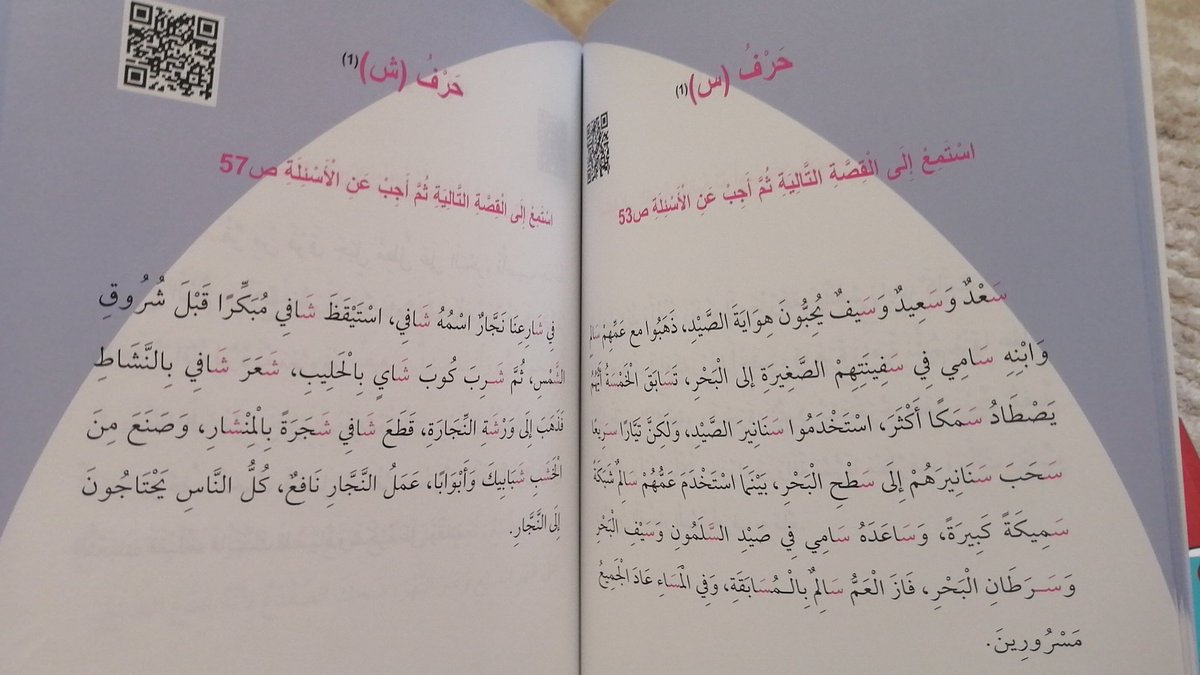 حَرْفُ (س)(1)
اسْتَمِعْ إِلَى الْقِصَّةِ التَّالِيَةِ ثُمَّ أَجِبْ عَنِ الْأَسْئِلَةِ ص53
سَعْدٌ وَسَعِيدٌ وَسَيفٌ يُحِبُّونَ هِوَايَةَ الصَّيْدِ، ذَهَبُوا مع عَمِّهِمْ سَالِمٍ
وَابْنِهِ سَامِي فِي سَفِينَتِهِمْ الصَّغِيرَةِ إلى الْبَحْرِ، تَسَابَقَ الْخَمْسَةُ أَيُّهُمْ
يَصْطَادُ سَمَكًا أَكْثَرَ، اسْتَخْدَمُوا سَنَانِيرَ الصَّيْدِ، وَلَكِنَّ تَيَّارًا سَرِيعًا
سَحَبَ سَنَانِيرَهُمْ إِلَى سَطْحِ الْبَحْرِ، بَيْنَمَا اسْتَخْدَمَ عَمُّهُمْ سَالِمٌ شَبَكَةً
سَمِيكَةً كَبِيرَةً، وَسَاعَدَهُ سَامِي فِي صَيْدِ السَّلَمُونِ وَسَيْفِ الْبَحْرِ
وَسَـرَطَانِ الْبَحْرِ، فَازَ الْعَمُّ سَالِمٌ بِالْـمُسَابَقَةِ، وَفِي الْمَسَاءِ عَادَ الْجَمِيعُ
مَسْرُورِينَ.
حَرْفُ (ش)(1)
اسْتَمِعْ إِلَى الْقِصَّةِ التَّالِيَةِ ثُمَّ أَجِبْ عَنِ الْأَسْئِلَةِ ص57
فِي شَارِعِنَا نَجَّارٌ اسْمُهُ شَافِي، اسْتَيْقَظَ شَافِي مُبَكِّرًا قَبْلَ شُرُوقِ
الشَّمْسِ، ثُمَّ شَـرِبَ كُوبَ شَايٍ بِالْحَلِيبِ، شَعَرَ شَافِي بِالنَّشَاطِ
فَذَهَبَ إِلَى وَرْشَةِ النِّجَارَةِ، قَطَعَ شَافِي شَجَرَةً بِالْمِنْشَارِ، وَصَنَعَ مِنَ
الْخَشَبِ شَبَابِيكَ وَأَبْوَابًا، عَمَلُ النَّجَّارِ نَافِعٌ، كُلُّ النَّاسِ يَحْتَاجُونَ
إِلَى النَّجَّارِ.